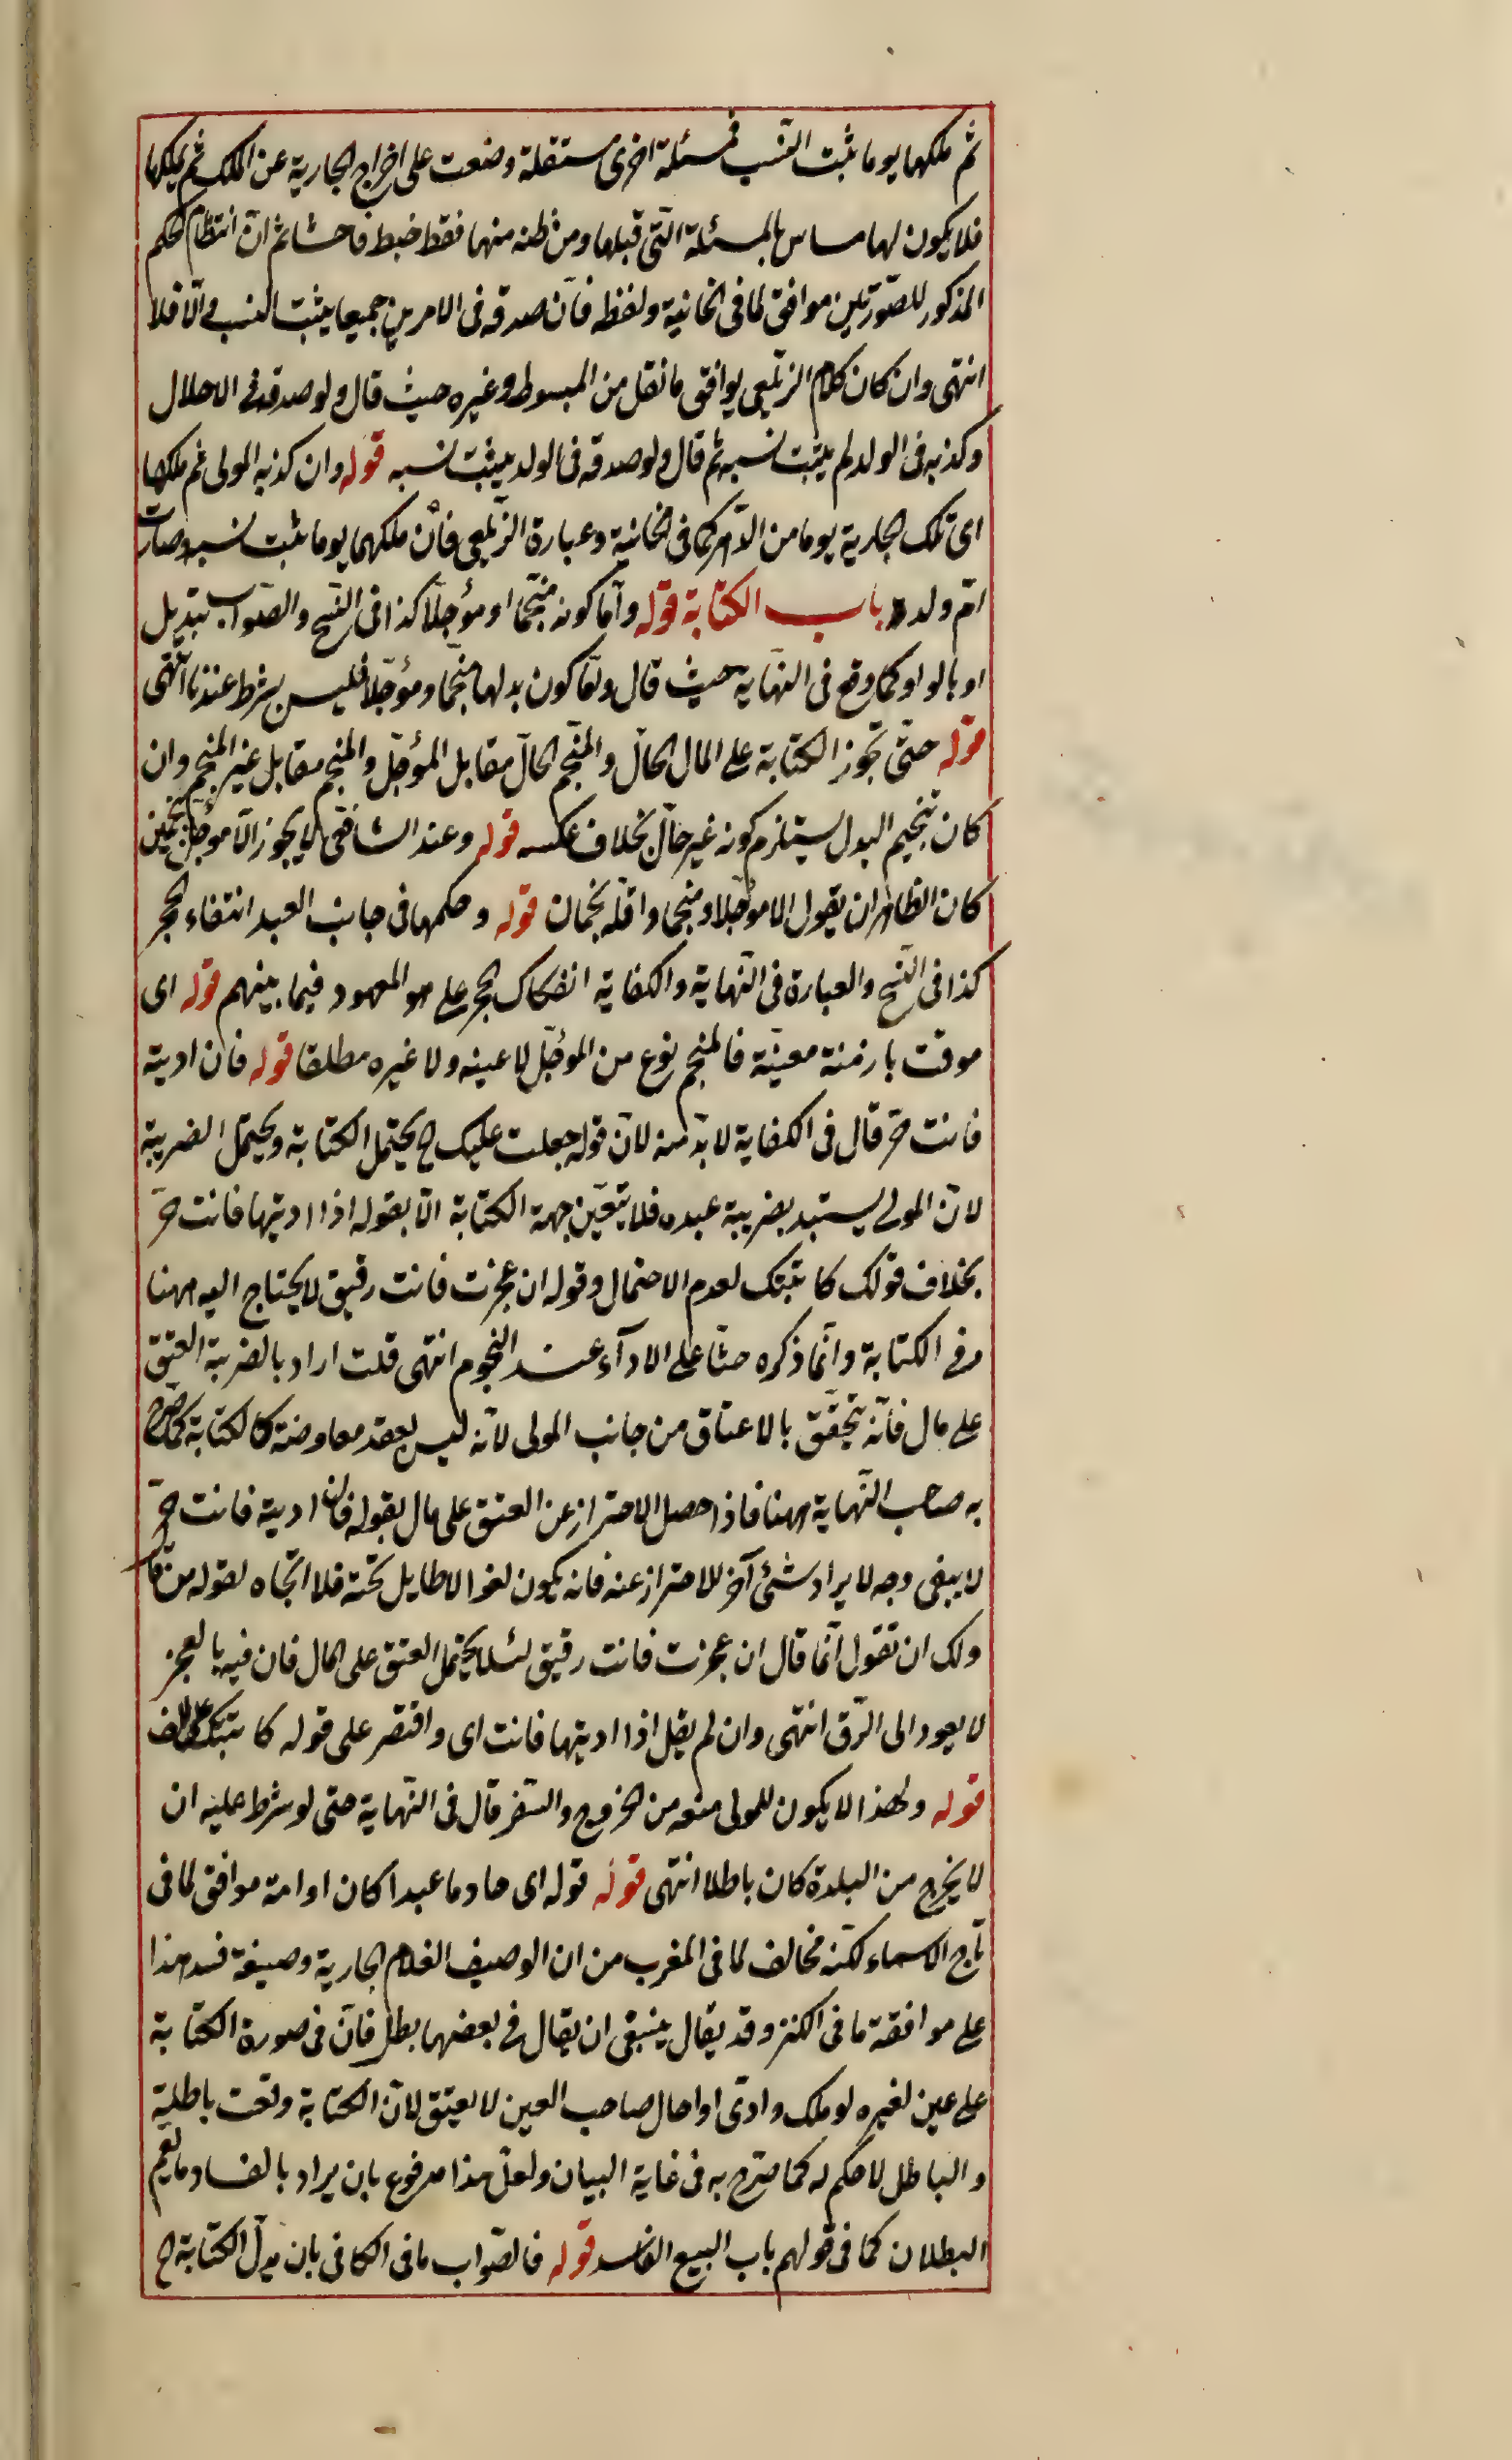 ثم ملكها يوما يثبت النسب فمسئلة اخرى مستقلة وضعت على اخراج الجارية عن الملك ثم يملكها
فلا يكون لها مساس بالمسئلة التى قبلها ومن ظنه منها فقط خبط فاحشا ثم ان انتظام الحكم
المذكور للصورتين موافق لما فى الخانية ولفظه فان صدقه فى الامرين جميعا يثبت النسب والا فلا
انتهى وان كان كلام الزيلعى يوافق ما نقل من المبسوط وغيره حيث قال ولو صدقه فى الاحلال
وكذبه فى الولد لم يثبت نسبه ثم قال ولو صدقه فى الولد يثبت نسبه قوله وان كذبه المولى ثم ملكها
اى تلك الجارية يوما من الدهر كما فى الخانية وعبارة الزيلعى فان ملكهما يوما يثبت نسبه وصارت
ام ولده باب الكتابة قوله واما كونه منجما او مؤجلا كذا فى النسخ والصواب تبديل
او بالواو كما وقع فى النهاية حيث قال واما كون بدلها منجما ومؤجلا فليس بشرط عندنا انتهى
قوله حتى تجوز الكتابة على المال الحال والمنجم الحال مقابل المؤجل والمنجم مقابل غير المنجم وان
كان تنجيم البدل يستلزم كونه غير حال بخلاف عكسه قوله وعند الشافعى لا يجوز الا مؤجلا بنجمين
كان الظاهر ان يقول الا مؤجلا ومنجما واقله نجمان قوله وحكمها فى جانب العبد انتفاء الحجر
كذا فى النسخ والعبارة فى النهاية والكفاية انفكاك الحجر على هو المعهود فيما بينهم قوله اى
موقت بازمنة معينة فالمنجم نوع من المؤجل لا عينه ولا غيره مطلقا قوله فان اديته
فانت حر قال فى الكفاية لا بد منه لان قوله جعلت عليك ح يحتمل الكتابة ويحتمل الضريبة
لان المولى يستبد بضريبة عبده فلا يتعين جهة الكتابة الا بقوله اذا اديتها فانت حر
بخلاف قولك كاتبتك لعدم الاحتمال وقوله ان عجزت فانت رقيق لا يحتاج اليه ههنا
وفى الكتابة وانما ذكره حثا على الاداء عند النجوم انتهى قلت اراد بالضريبة العتق
على مال فانه يتحقق بالاعتاق من جانب المولى لانه ليس بعقد معاوضة كالكتابة كما صرح
به صاحب النهاية ههنا فاذا حصل الاحتراز عن العتق على مال بقوله فان اديته فانت حر
لا يبقى وجه لايراد شئ آخر للاحتراز عنه فانه يكون لغوا لا طايل تحته فلا اتجاه لقوله من قال
ولك ان تقول انما قال ان عجزت فانت رقيق لئلا يحتمل العتق على المال فان فيه بالعجز
لا يعود الى الرق انتهى وان لم يقل اذا اديتها فانت اى واقتصر على قوله كاتبتك على الف
قوله ولهذا لا يكون للمولى منعه من الخروج والسفر قال فى النهاية حتى لو شرط عليه ان
لا يخرج من البلدة كان باطلا انتهى قوله قوله اى خادما عبدا كان او امة موافق لما فى
تاج الاسماء لكنه مخالف لما فى المغرب من ان الوصيف الغلام الجارية وصيفة فسد هذا
على موافقة ما فى الكنز وقد يقال ينبغى ان يقال فى بعضها بطل فان فى صورة الكتابة
على عين لغيره لو ملك وادى او احال صاحب العين لا يعتق لان الكتابة وقعت باطلة
والباطل لا حكم له كما صرح به فى غاية البيان ولعل هذا مدفوع بان يراد بالفساد ما يعم
البطلان كما فى قولهم باب البيع الفاسد قوله فالصواب ما فى الكافى بان بدل الكتابة ح